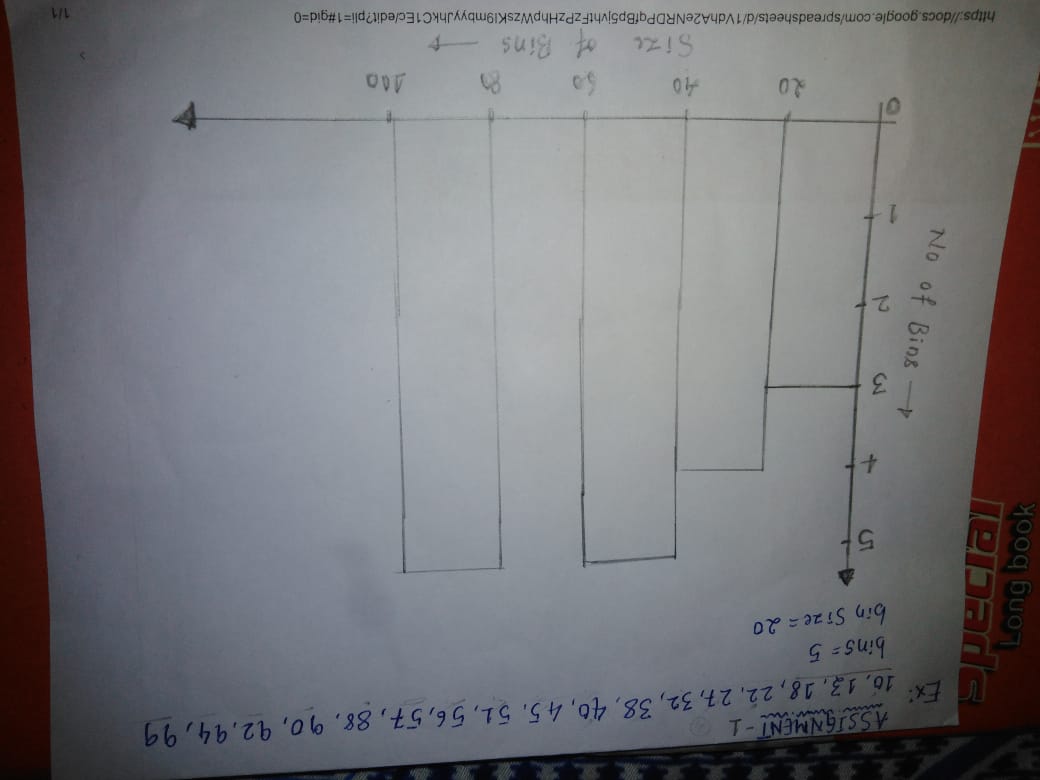 ASSIGNMENT-1
Ex: 10, 13, 18, 22, 27, 32, 38, 40, 45, 51, 56, 57, 88, 90, 92, 94, 99
bins = 5
bin Size = 20
5
4
3
2
1
0
No of Bins →
20 40 60 80 100
Size of Bins →
https://docs.google.com/spreadsheets/d/1VdhA2eNRDPqfBp5jvhtFzPzHhpWzsKl9mbyyJhkC1Ec/edit?pli=1#gid=0 1/1
Special
Long book